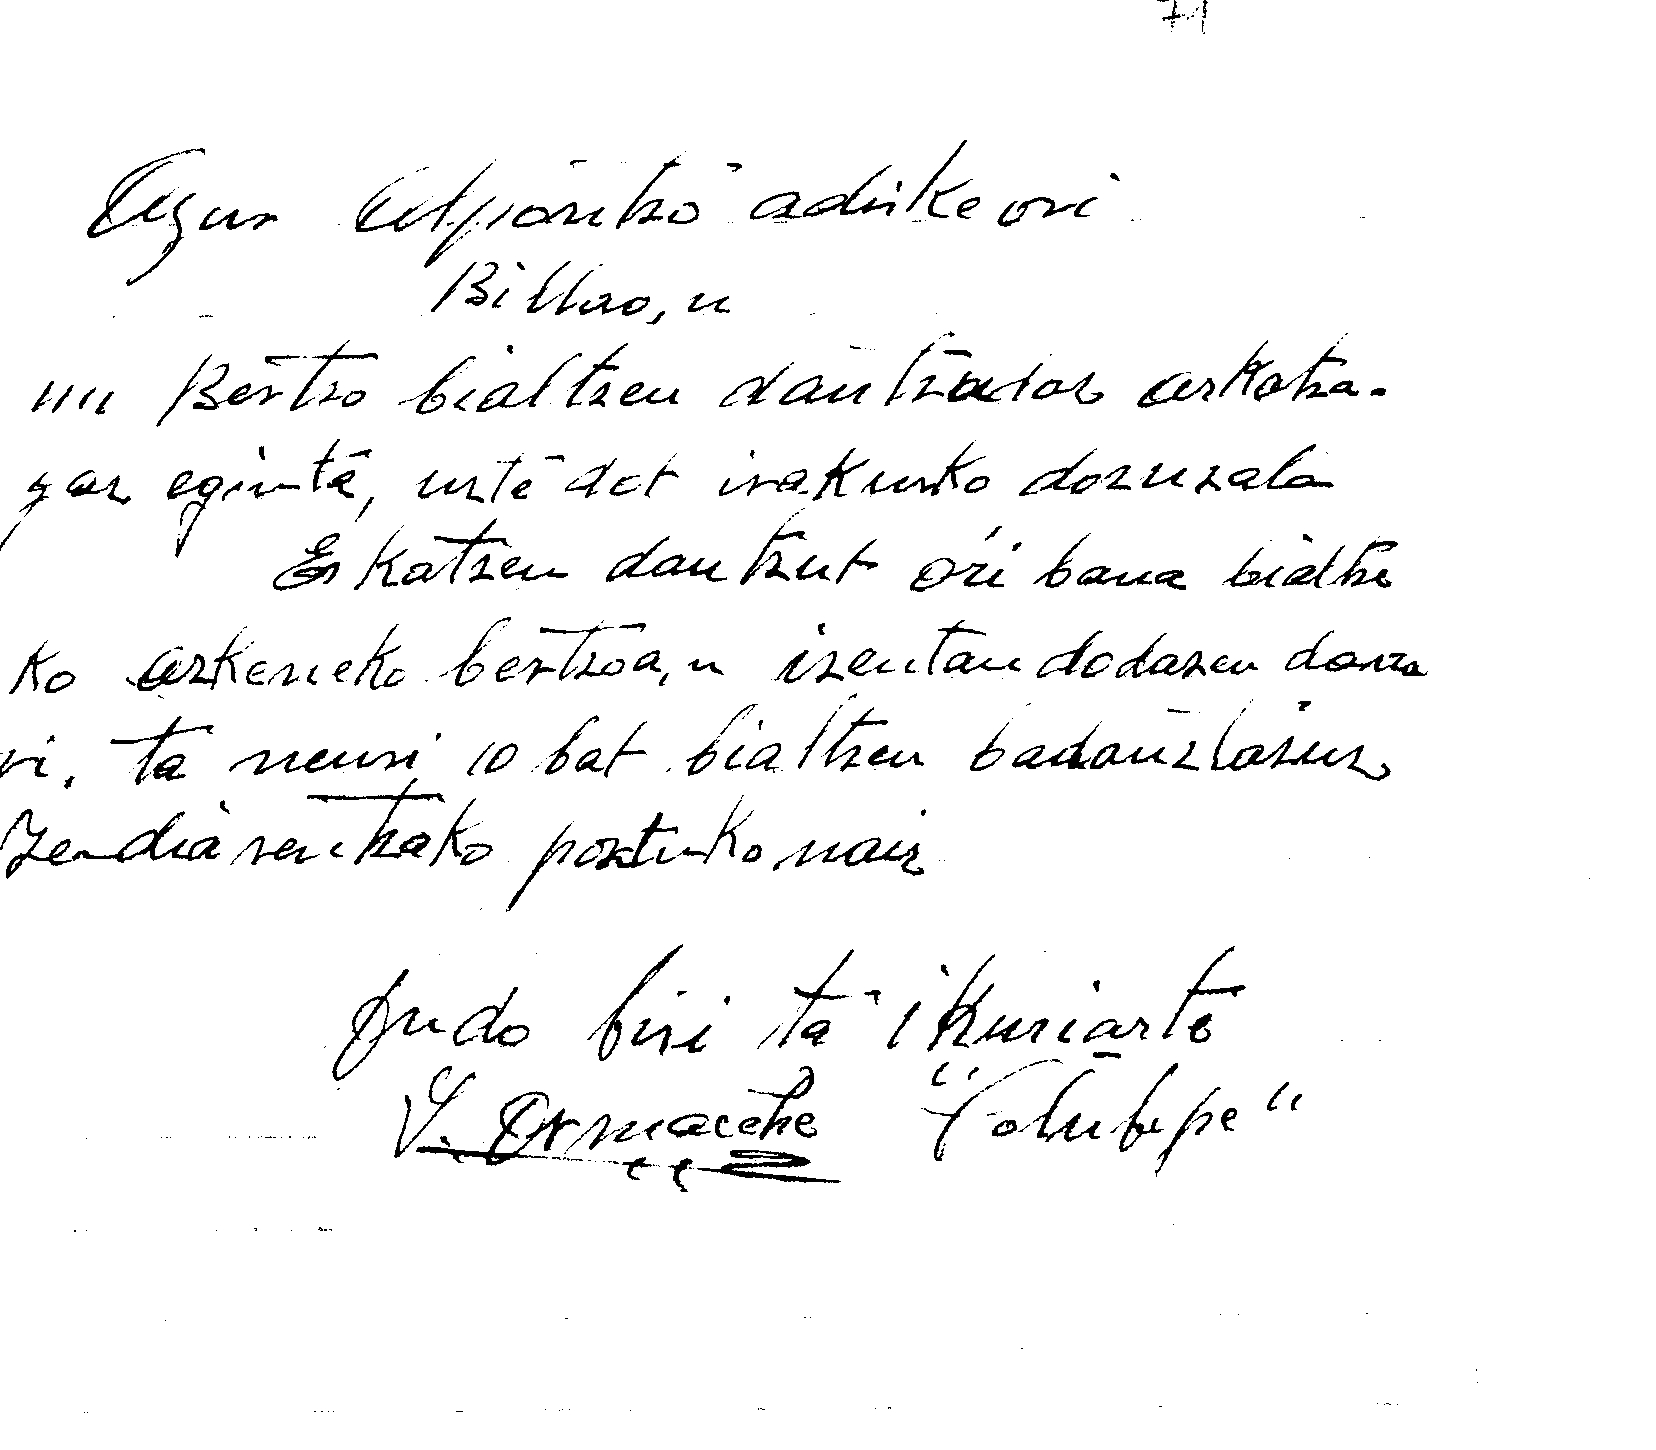 71
Agur Alponitxo adizkeori
Bilbao,n
Bertso bialtzen dautzudaz azkatza-
gaz eginta, uste dot irakurko dozuzala
Eskatzen dautzut ori bana bialtze
ko azkeneko bertsoa,n izentau dodazen danza
ri. ta neuri 10 bat bialtzen badauztazuz
Zendiarentzako poztuko naiz
Gudo biri ta ikuriarte
Ormaeche